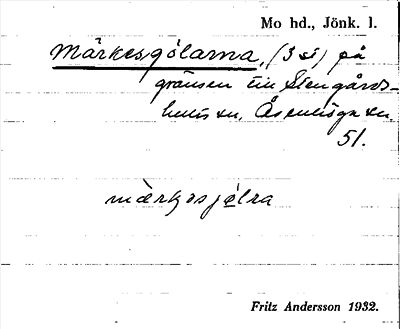 Mo hd., Jönk. l.
Märkesgölarna, (3 st) på
gränsen till Stengårds-
hults sn, Åsenhöga sn.
51.
märkəsjǝlra
Fritz Andersson 1932.